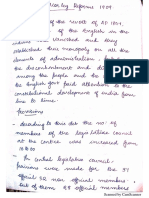 Minto Morley Reforms 1909
of the revolt of AD 1857,
of the English in the
Indians had vanished and they
established their monopoly on all the
branches of administration, but
the discontentment and
among the people and to
the English had to pay attention to the
constitutional development of India from
time to time.
Provisions
According to this Act the no. of
members of the legislative council
at the centre was increased from
16 to 60
In Central legislative council:
had made for the 37
official 32 non official members.
out of them 28 official members
Scanned by CamScanner